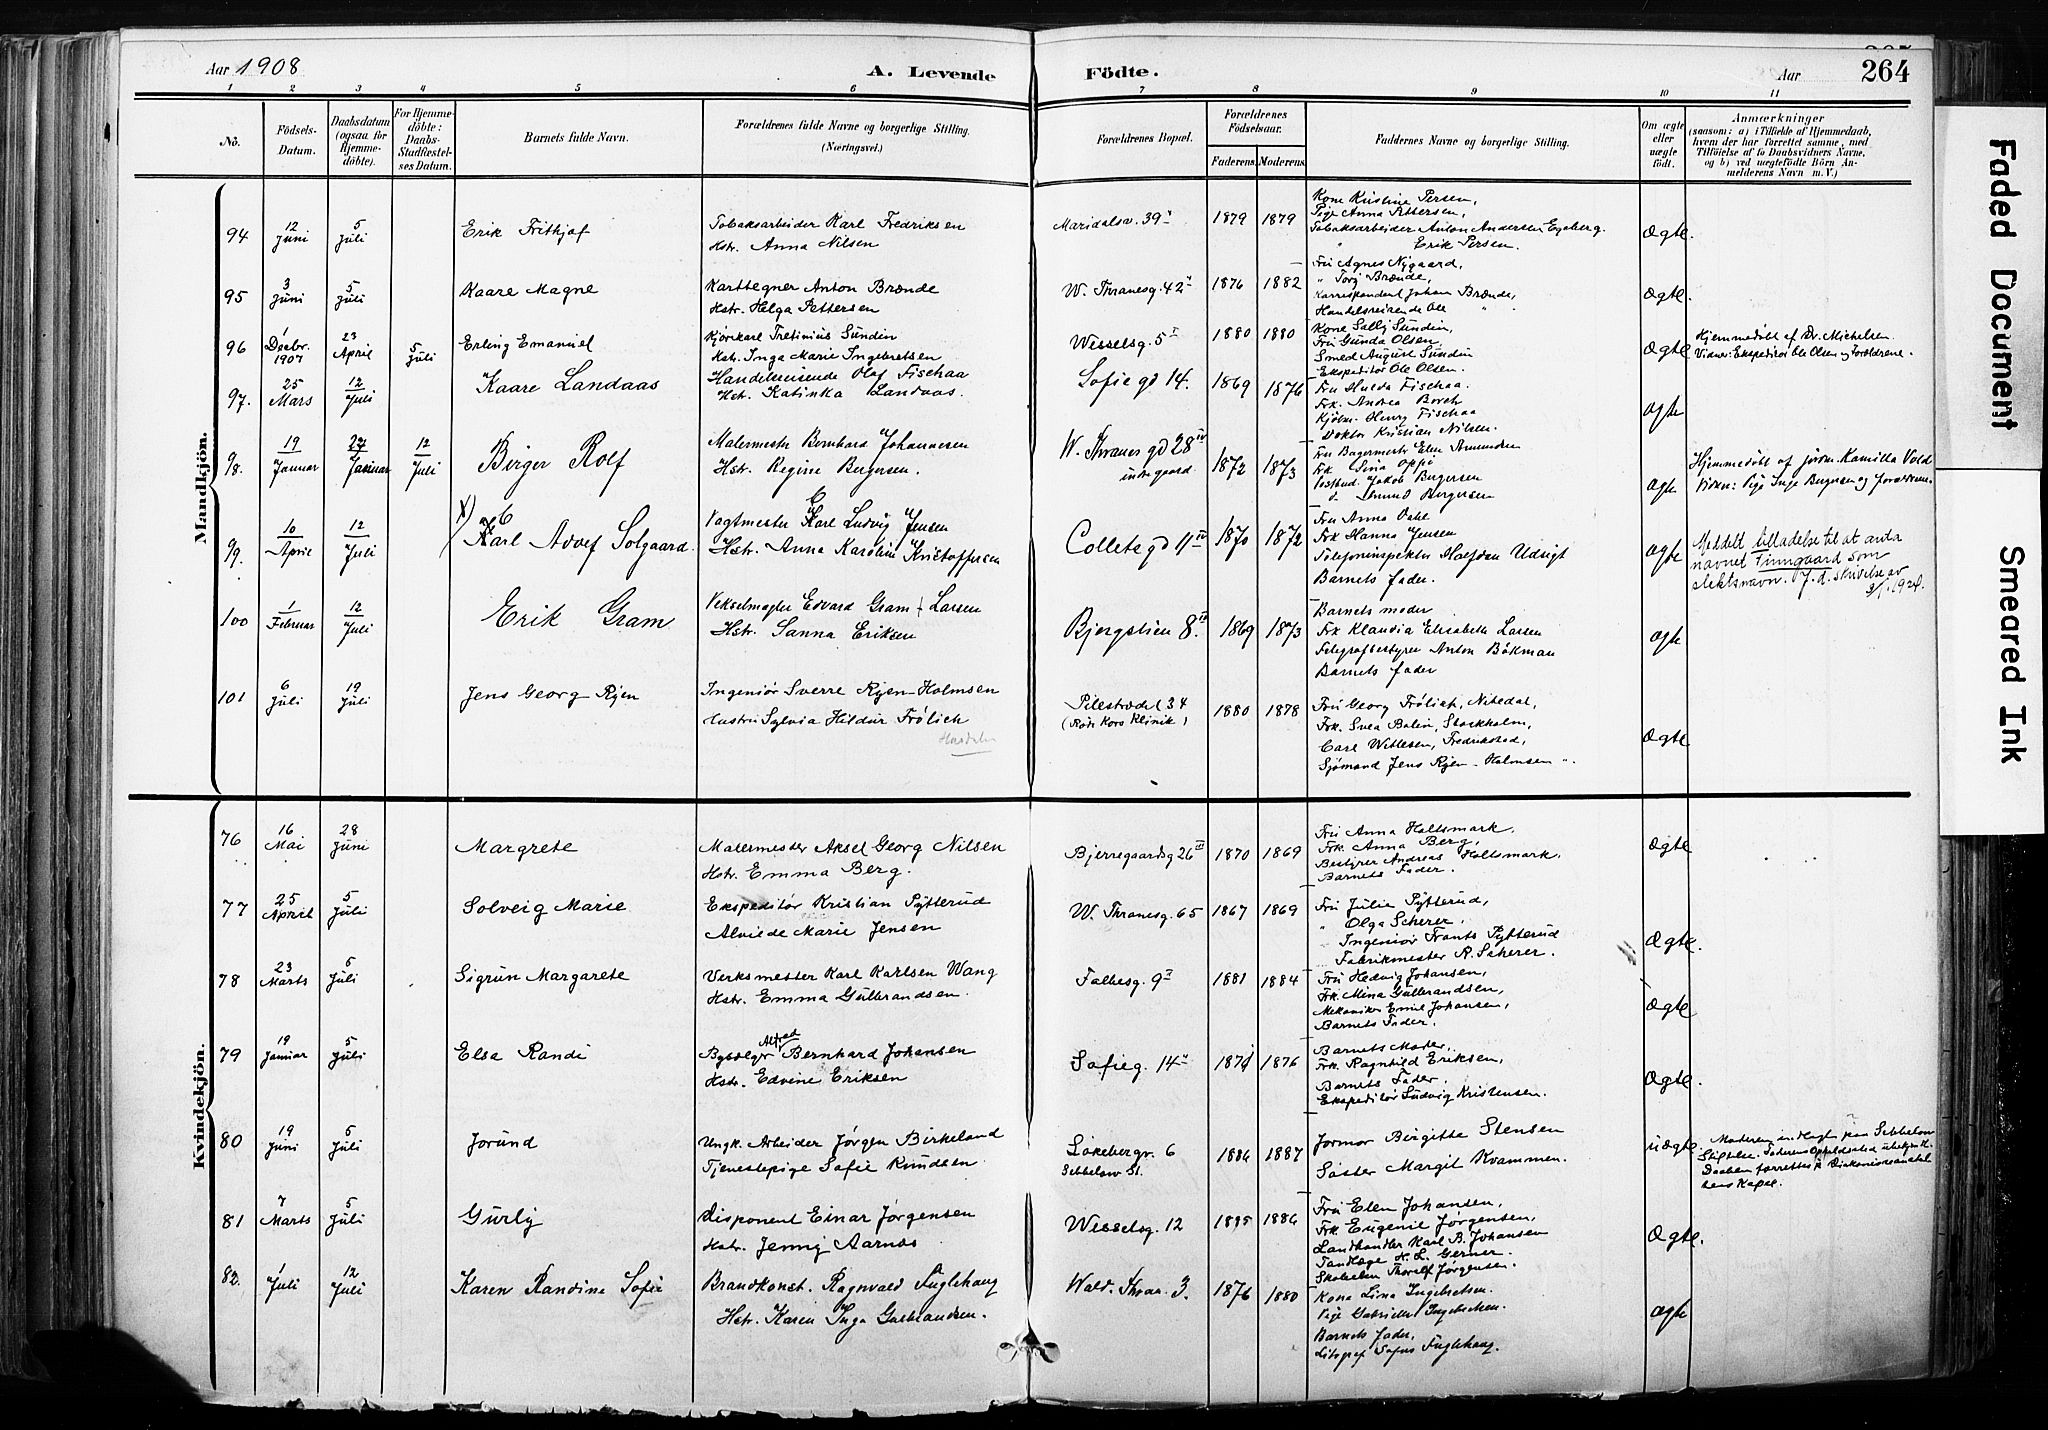 Aar 1908
A. Levende
Födte.
Aar
264
Faded Document
Smeared Ink
1 2 3 4 5 6 7 8 9 10 11
No.
Födsels-
Datum.
Daabsdatum
(ogsaa for
Hjemme-
döbte).
For Hjemme-
döbte:
Daabs-
Stadfæstel-
ses Datum.
Barnets fulde Navn.
Forældrenes fulde Navne og borgerlige Stilling.
(Næringsvei.)
Forældrenes Bopæl.
Forældrenes
Födselsaar.
Faderens. Moderens.
Faddernes Navne og borgerlige Stilling.
Om ægte
eller
uægte
födt.
Anmærkninger
(saasom: a) i Tilfælde af Hjemmedaab,
hvem der har forrettet samme, med
Tilföielse af to Daabsvidners Navne,
og b) ved uægtefödte Börn An-
melderens Navn m. V.)
Mandkjön.
94
12
Juni
5
Juli
Erik Frithjof
Tobaksarbeider Karl Fredriksen
Hstr. Anna Nilsen
Maridalsv. 39
1879
1879
Kone Kristine Persen,
Pige Anna Pettersen,
Tobaksarbeider Anton Andersen Egeberg.
" Erik Persen.
Ægte.
95
3
Juni
5
Juli
Kaare Magne
Karttegner Anton Brænde
Hstr. Helga Pettersen
W. Thranesg. 42
1876
1882
Fru Agnes Nygaard,
" Torg Brænde,
Korrespondent Johan Brænde,
Handelsreisende Ole "
Ægte.
96
1
Decbr.
1907
23
April
5
Juli
Erling Emanuel
Kjørekarl Tretinius Sundin
Hstr. Inga Marie Ingebretsen
Wesselsg. 5 I
1880
1880
Kone Sally Sundin,
Fru Gunda Olsen,
Smed August Sundin
Ekspeditör Ole Olsen.
Ægte
Hjemmedöbt af Dr. Michelsen.
Vidner: Ekspeditör Ole Olsen og Forældrene.
97.
25
Mars
12
Juli
Kaare Landaas
Handelsreisende Olaf Fischaa
Hstr. Katinka Landaas.
Sofie gd 14.
1869
1876
Fru Hulda Fischaa.
Frk. Andrea Borch
Kjøbm. Henry Fischaa
Doktor Kristian Nilsen.
ægte
98.
19
Januar
27
Januar
12
Juli
Birger Rolf
Malermester Bernhard Johannesen
Hstr. Regine Bergersen.
W. Thranes gd 28 IV
indre gaard
1872
1873
Fru Bagermestr Elen Amundsen
Frk Sina Oppi
Postbud. Jakob Bergersen
d. Amund Bergersen
ægte
Hjemmedöbt af jordm. Kamilla Vold
Vidner: Pige Inga Bergersen og forældrene.
99.
10
April
12
Juli
X)
Karl Adolf Solgaard.
Vagtmester Karl Ludvig Jensen
Hstr. Anna Karoline Kristoffersen
Collets gd 11 IV
1870
1872
Fru Anna Dahl
Frk Hanna Jensen
Telefoninspektör Halfdan Udsigt
Barnets fader.
ægte
Meddelt tilladelse til at anta
navnet Finngaard som
slektsnavn. J. d. skrivelse av
3/1. 1924.
100
1
Februar
12
Juli
Erik Gram
Vekselmægler Edvard Gram-Larsen
Hstr. Sanna Eriksen
Bjergstien 8. IV
1869
1873
Barnets moder
Frk Klaudia Elisabeth Larsen
Telegrafbestyrer Anton Bökman
Barnets fader
ægte
101
6
Juli
19
Juli
Jens Georg Ryen
Ingeniör Sverre Ryen-Holmsen
Hustru Sylvia Hildur Frölich
Pilestrædet 34
(Röde Kors Klinik)
1880
1878
Fru Georg Frölich, Nitedal,
Frk. Svea Bolin, Stockholm,
Carl Wetlesen, Fredrikstad,
Sjömand Jens Ryen-Holmsen ".
Ægte
Kvindekjön.
76
16
Mai
28
Juni
Margrete
Malermester Aksel Georg Nilsen
Hstr. Emma Berg.
Bjerregaardsg 26 III
1870
1869
Fru Anna Holtsmark,
Frk. Anna Berg,
Bestyrer Andreas Holtsmark,
Barnets Fader.
Ægte
77
25
April
5
Juli
Solveig Marie
Ekspeditör Kristian Pytterud
Alvilde Marie Jensen
W. Thranesg. 65
1867
1869
Fru Julie Pytterud,
" Olga Scherer.
Ingeniör Frants Pytterud
Fabrikmester R. Scherer.
Ægte.
78
23
Marts
5
Juli
Sigrun Margarete
Verksmester Karl Karlsen Wang
Hstr. Emma Gulbrandsen.
Falbesg. 9
1881
1884
Fru Hedvig Johansen,
Frk. Mina Gulbrandsen,
Mekaniker Emil Johansen,
Barnets Fader.
Ægte
79
19
Januar
5
Juli
Elsa Randi
Alfred
Bysselgr Bernhard Johansen
Hstr. Edvine Eriksen
Sofieg. 14
1871
1876
Barnets Moder,
Frk. Ragnhild Eriksen,
Barnets Fader.
Ekspeditör Ludvig Kristensen.
Ægte.
80
19
Juni
5
Juli
Jorund
Ungk. Arbeider Jörgen Birkeland
Tjenestepige Sofie Knudsen
Lökebergv. 6
Sebbelow St.
1886
1887
Jormor Birgitte Stensen
Söster Margit Kvammen.
uægte
Moderen indlagt paa Sebbelow
Stiftelse. Faderens Opholdssted ubekjendt.
Daaben forrettet i Diakonisseanstal-
tens Kapel.
81
7
Marts
5
Juli
Gurly
Disponent Einar Jörgensen
Hstr. Jenny Aarnæs
Wesselsg. 12
1885
1886
Fru Elen Johansen,
Frk. Eugenie Jörgensen,
Landhandler Karl B. Johansen
Tandlæge H. L. Gerner.
Skoleelev Thoralf Jörgensen.
Ægte.
82.
1
Juli
12
Juli
Karen Randine Sofie
Brandkonst. Ragnvald Fuglehaug
Hstr. Karen Inga Gulbrandsen.
Wald. Thran. 3.
1876
1880
Kone Lina Ingebretsen.
Pige Gabrielle Ingebretsen.
Barnets fader,
Litograf Sofus Fuglehaug.
ægte